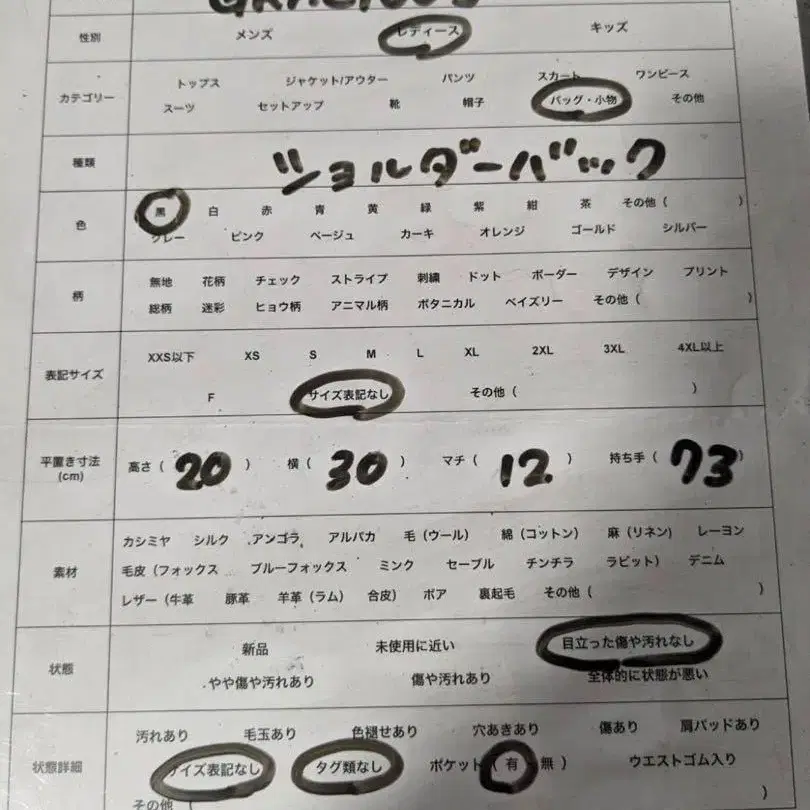 性別 メンズ レディース キッズ
カテゴリー トップス ジャケット/アウター パンツ スカート ワンピース
スーツ セットアップ 靴 帽子 バッグ・小物 その他
種類 ショルダーバック
色 黒 白 赤 青 黄 緑 紫 紺 茶 その他 ( )
グレー ピンク ベージュ カーキ オレンジ ゴールド シルバー
柄 無地 花柄 チェック ストライプ 刺繍 ドット ボーダー デザイン プリント
総柄 迷彩 ヒョウ柄 アニマル柄 ボタニカル ペイズリー その他 ( )
表記サイズ XXS以下 XS S M L XL 2XL 3XL 4XL以上
F サイズ表記なし その他 ( )
平置き寸法 (cm) 高さ ( 20 ) 横 ( 30 ) マチ ( 12 ) 持ち手 ( 73 )
素材 カシミヤ シルク アンゴラ アルパカ 毛 (ウール) 綿 (コットン) 麻 (リネン) レーヨン
毛皮 (フォックス ブルーフォックス ミンク セーブル チンチラ ラビット) デニム
レザー (牛革 豚革 羊革 (ラム) 合皮) ボア 裏起毛 その他 ( )
状態 新品 未使用に近い 目立った傷や汚れなし
やや傷や汚れあり 傷や汚れあり 全体的に状態が悪い
状態詳細 汚れあり 毛玉あり 色褪せあり 穴あきあり 傷あり 肩パッドあり
サイズ表記なし タグ類なし ポケット ( 有・無 ) ウエストゴム入り
その他 ( )